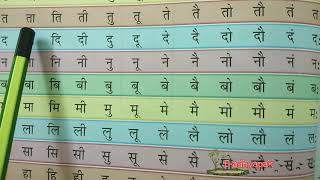 ति ती तु तू ते तै तो तौ तं त
द दि दी दु दू दे दै दो दौ दं दः
न ना नि नी नु नू ने नै नो नौ नं नः
ब बा बि बी बु बू बे बै बो बौ बं बः
मा मि मी मु मू मे मै मो मौ मं मः
ला लि ली लु लू ले लै लो लौ लं लः
सा सि सी सु सू से सै
हा हि ही हु हू हे है